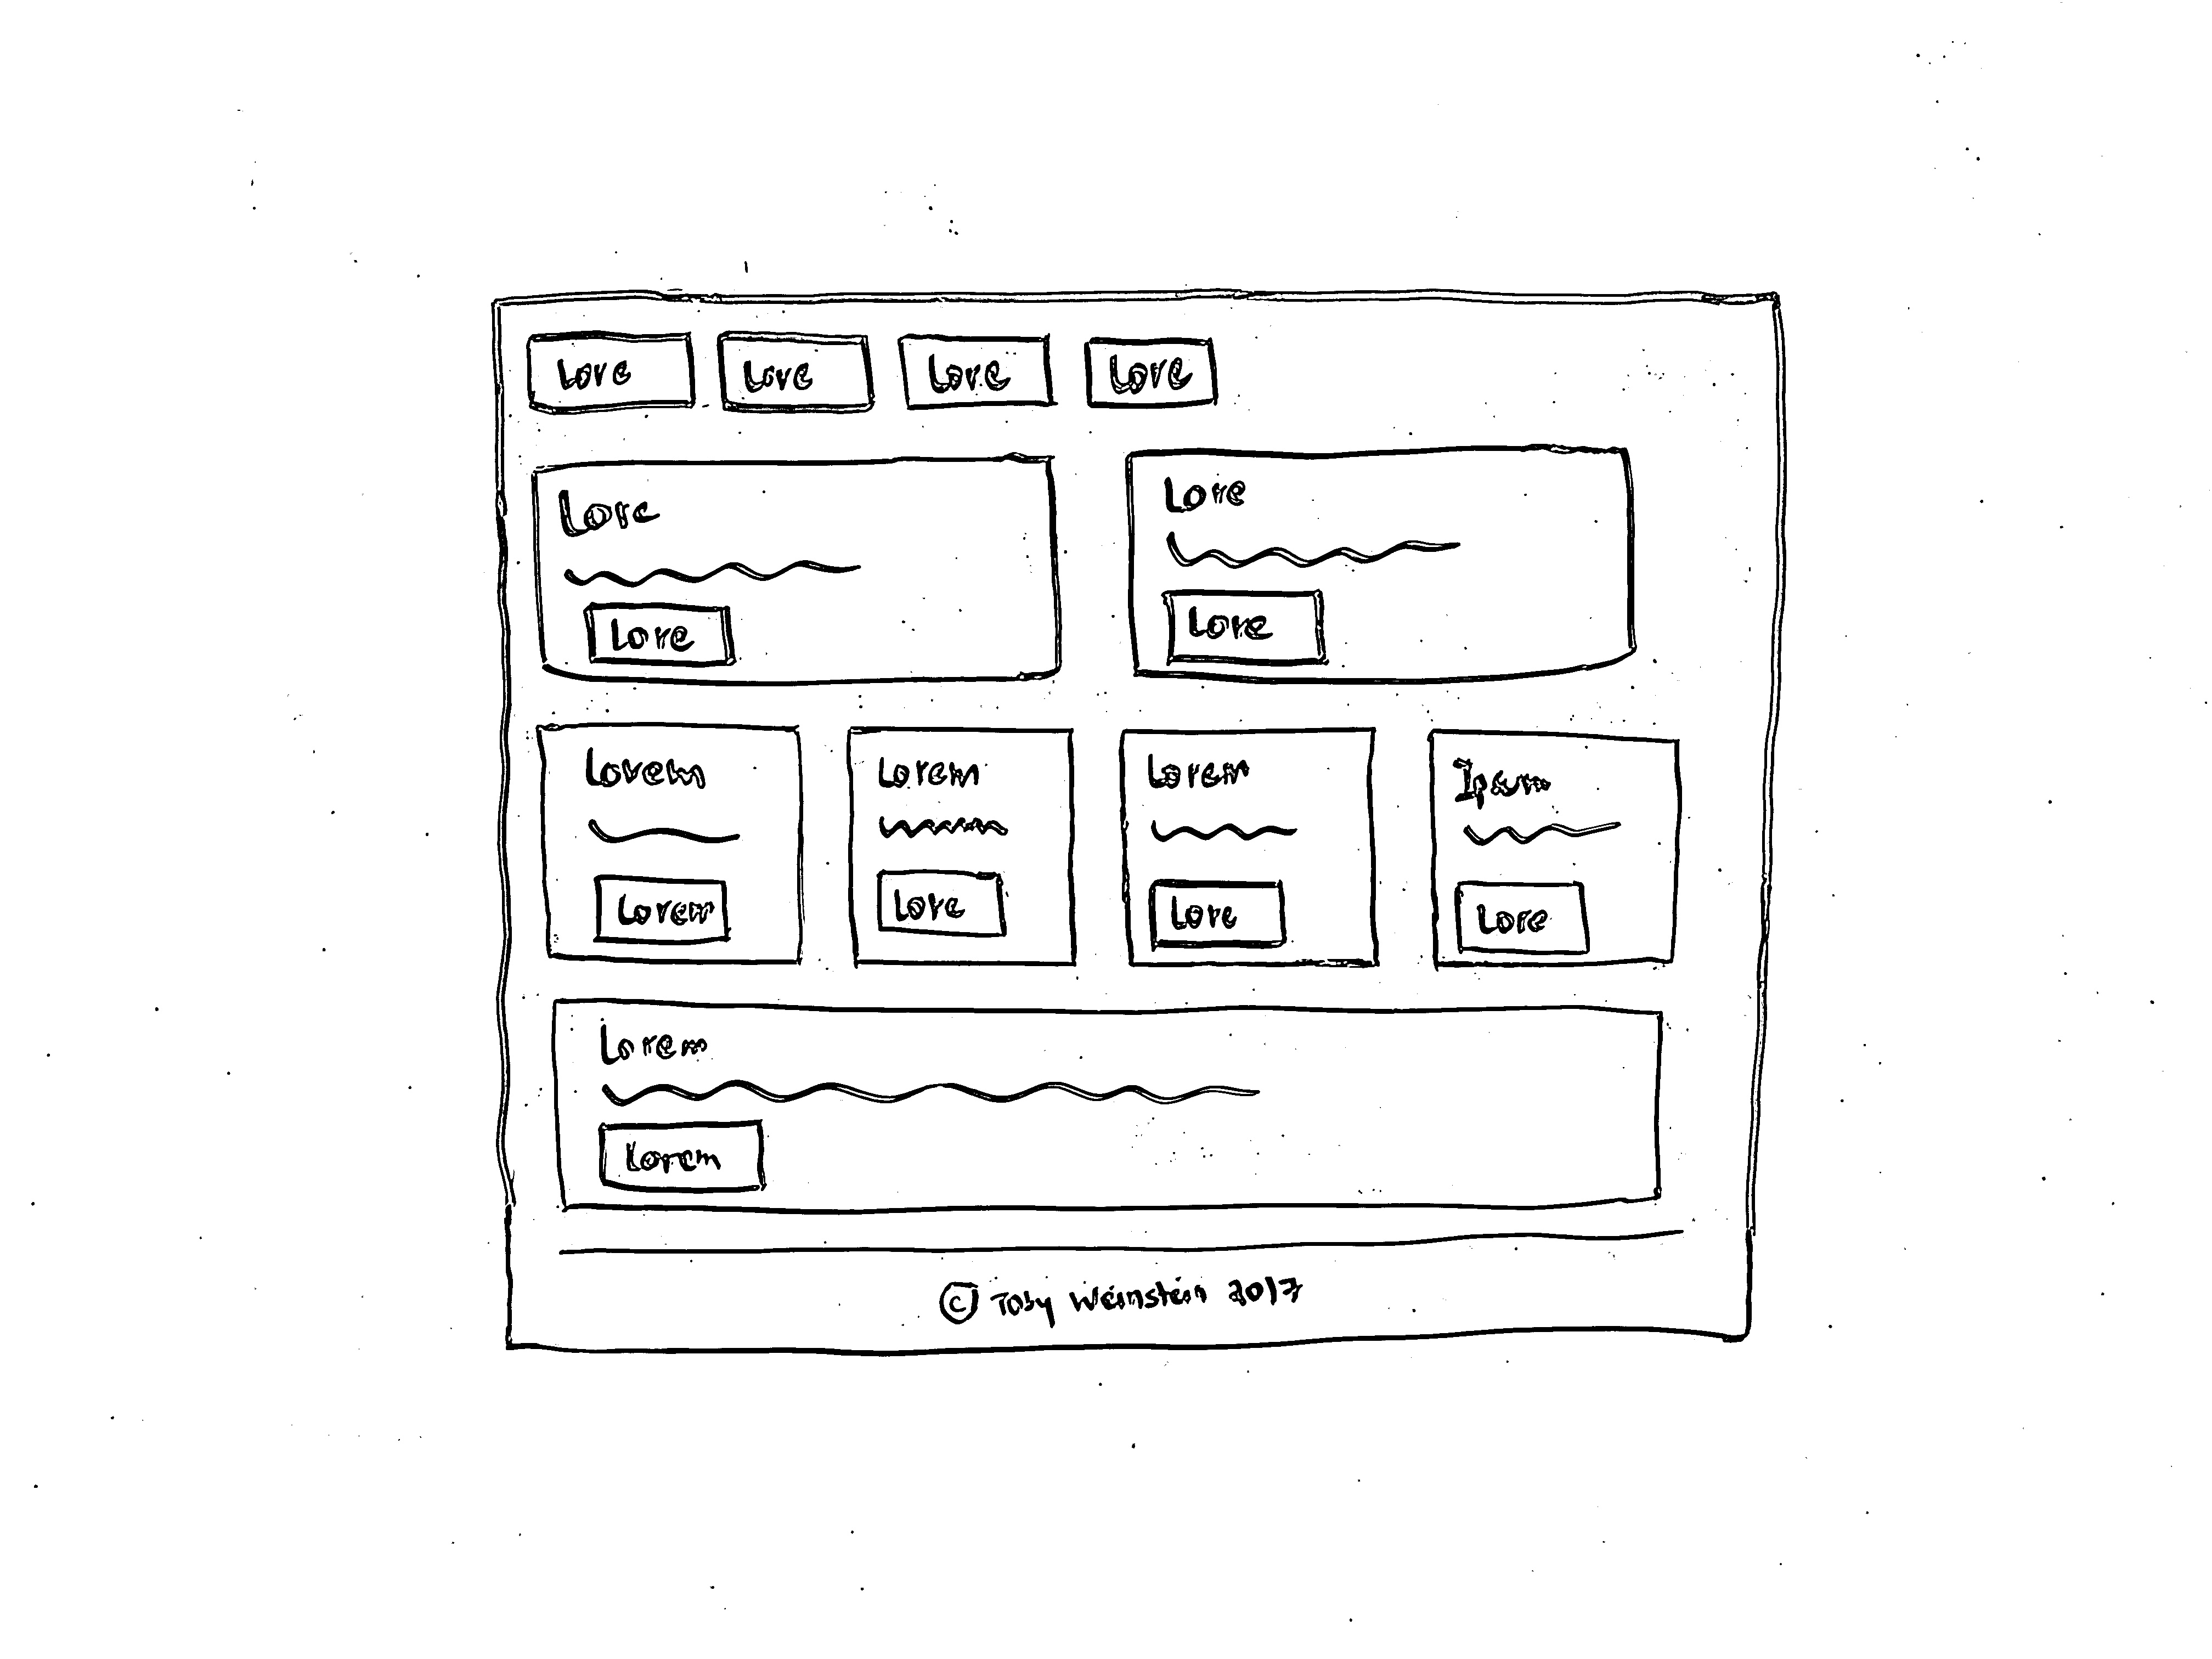 Lore Lore Lore Lore
Lore
Lore
Lore
Lore
Lorem
Lorem
Lorem
Lore
Lorem
Lore
Ipsum
Lore
Lorem
Lorem
© Toby Weinstein 2017